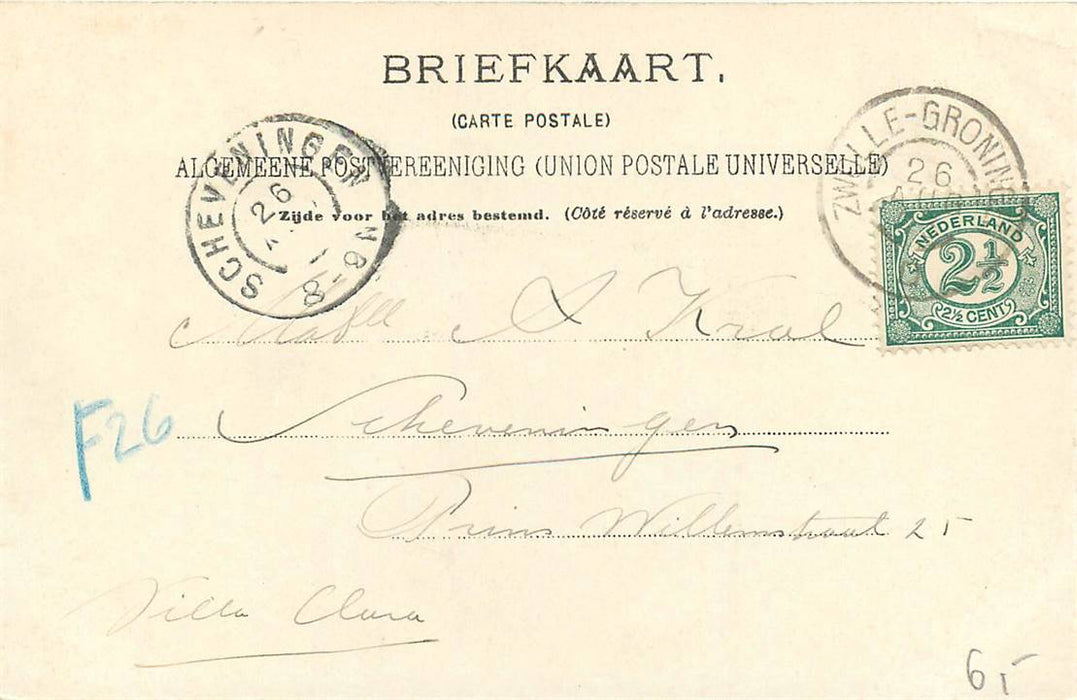 BRIEFKAART.
(CARTE POSTALE)
ALGEMEENE POSTVEREENIGING (UNION POSTALE UNIVERSELLE)
Zijde voor het adres bestemd. (Côté réservé à l'adresse.)
SCHEVENINGEN
26
8-
N
ZWOLLE-GRONINGEN
26
NEDERLAND
2½
2½ CENT
Krol
Scheveningen
Prins Willemstraat 25
Villa Clara
F26
6,-